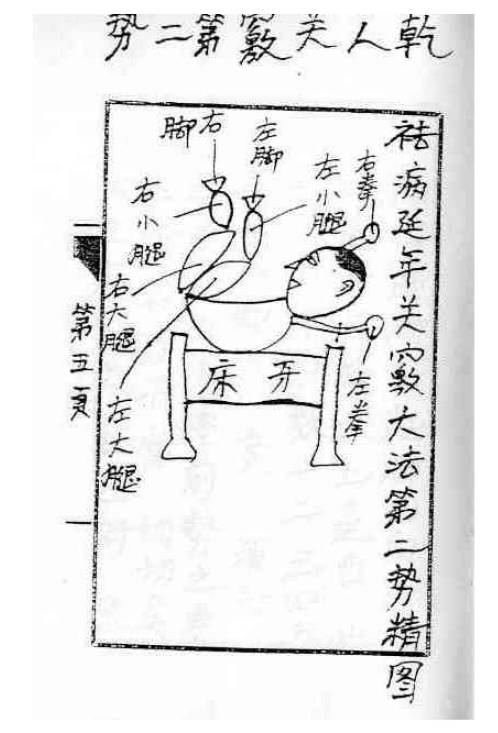 乾人关竅第二势
祛病延年关竅大法第二势精图
右拳
左小腿
左脚
右脚
右小腿
右大腿
左大腿
牙床
左拳
第五頁